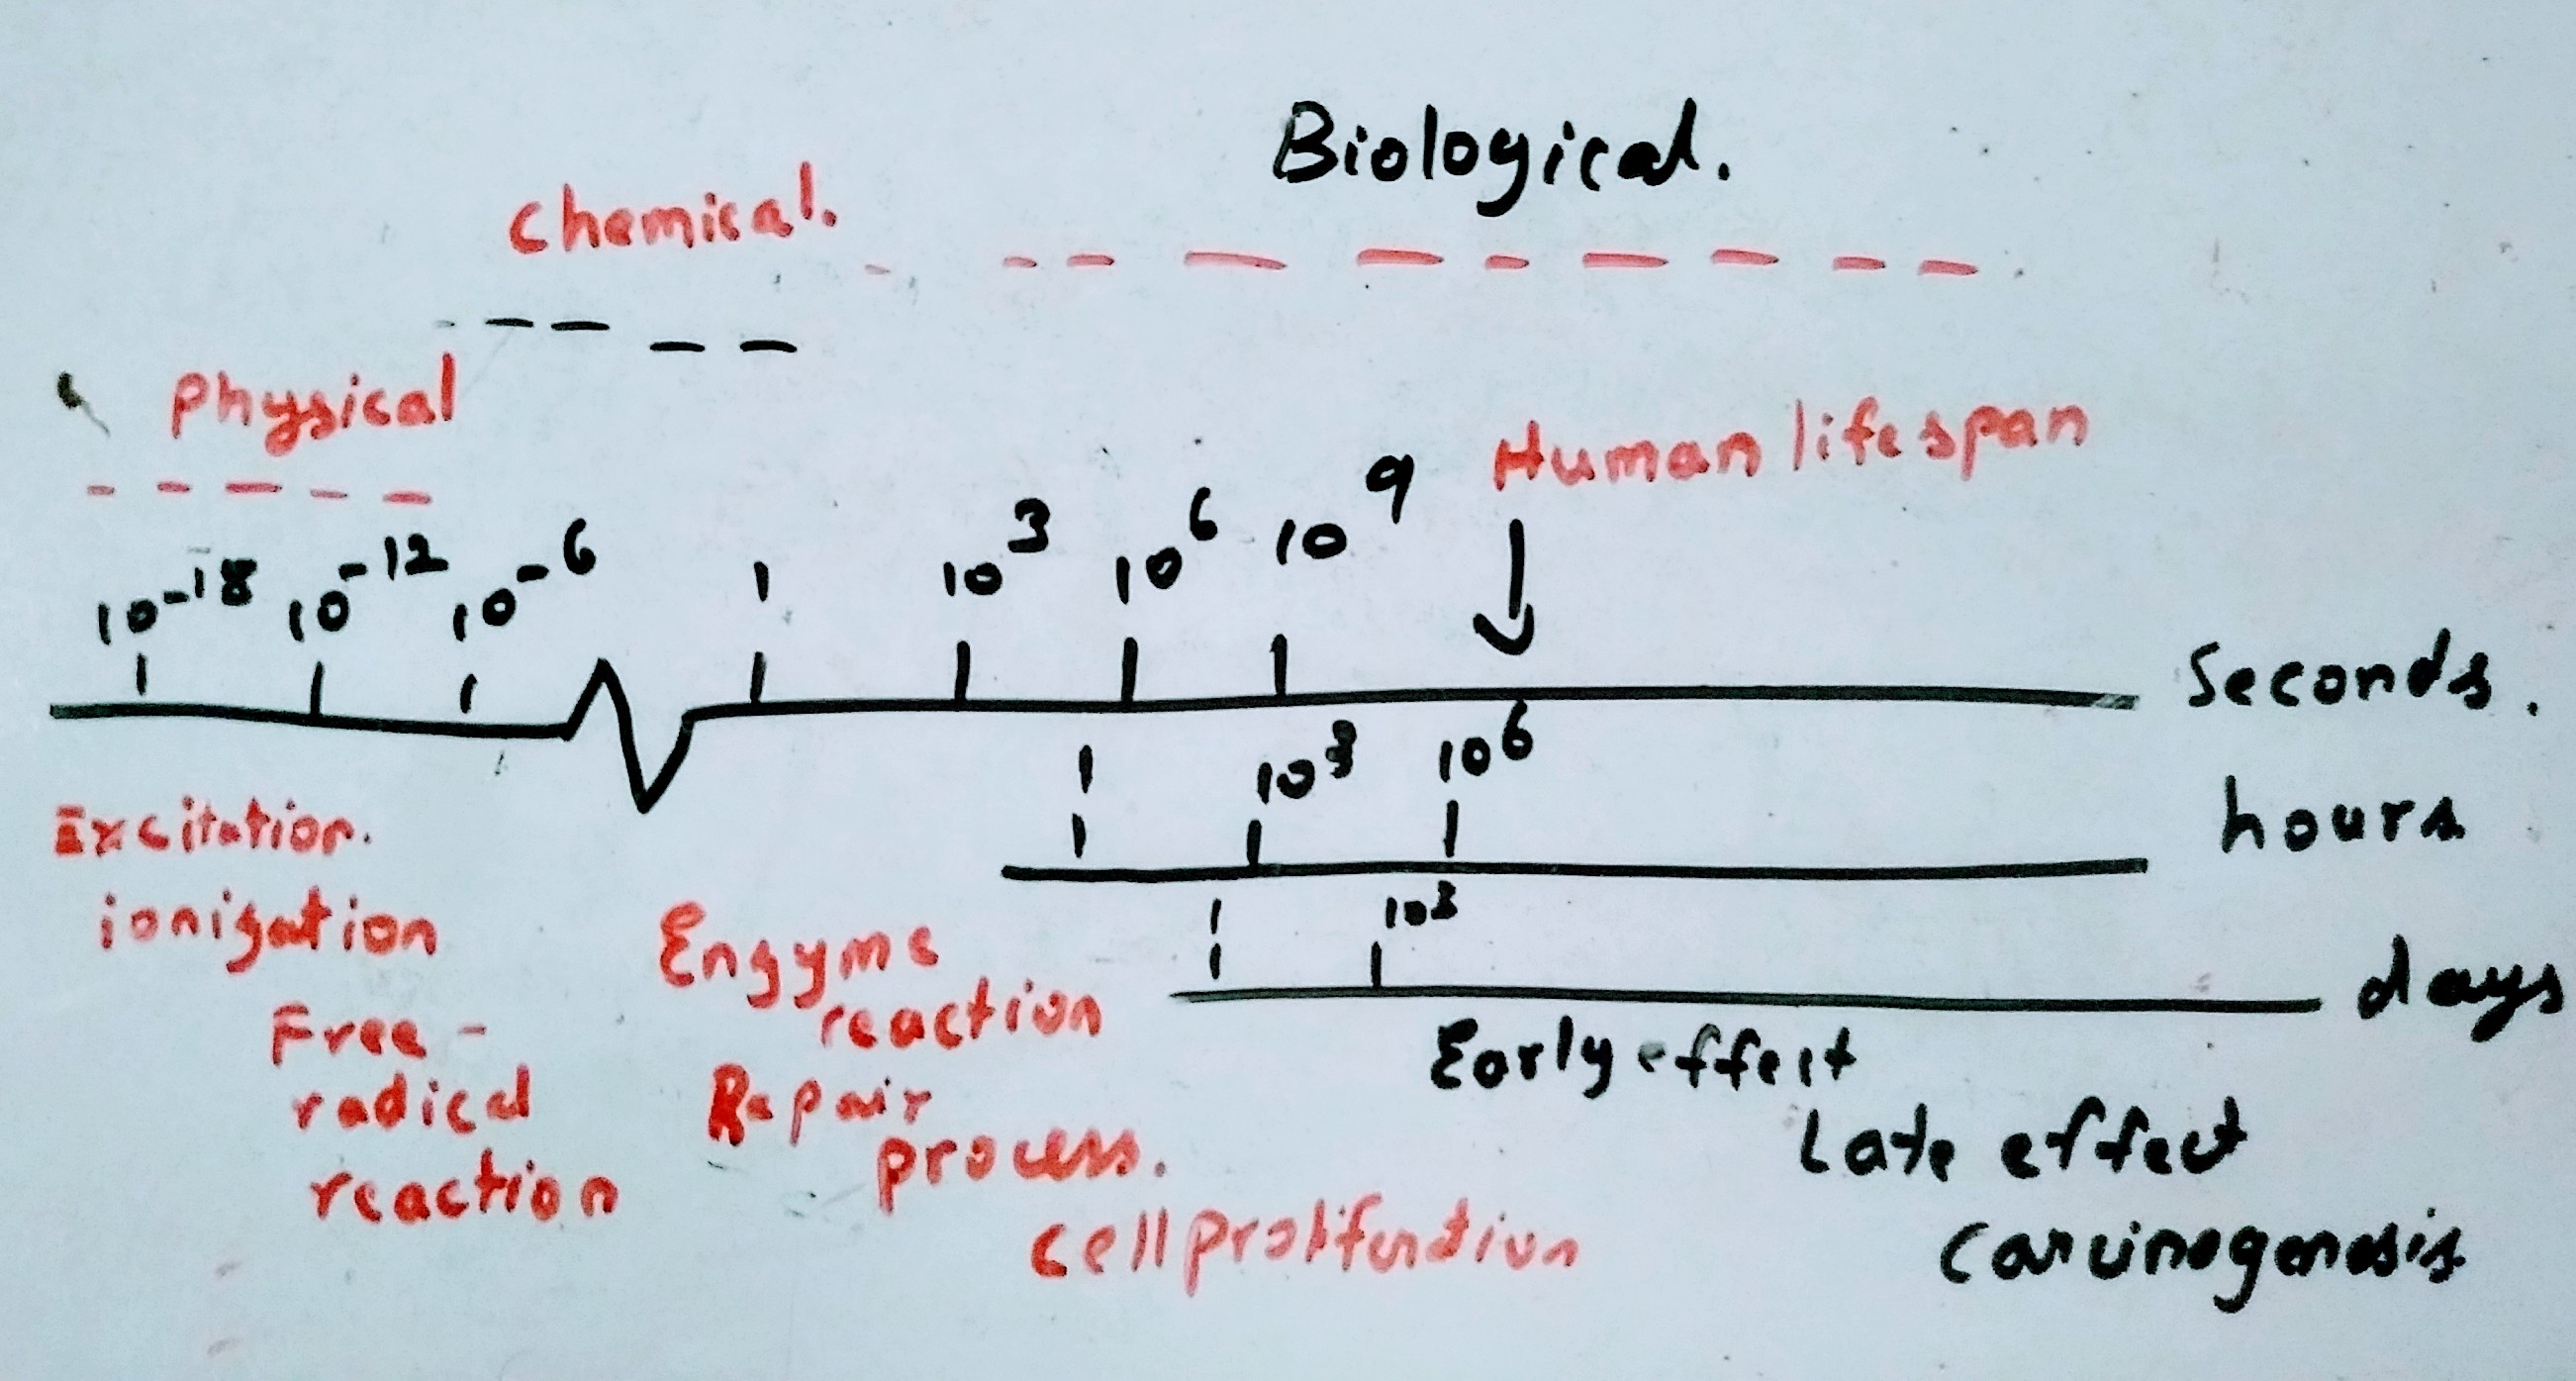 Biological.
Chemical.
Physical
Human lifespan
10-18 10-12 10-6 1 10 3 10 6 10 9
Seconds.
1 10 3 10 6
hours
1 10 3
days
Excitation.
ionization
Free-
radical
reaction
Enzyme
reaction
Repair
process.
Cell proliferation
Early effect
Late effect
Carcinogenesis